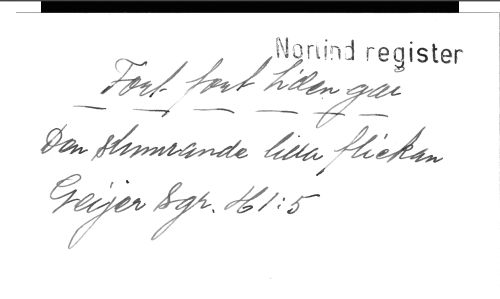 Nonind register
Fort fort tiden går
Den slumrande lilla flickan
Geijer Sgr. H1:5